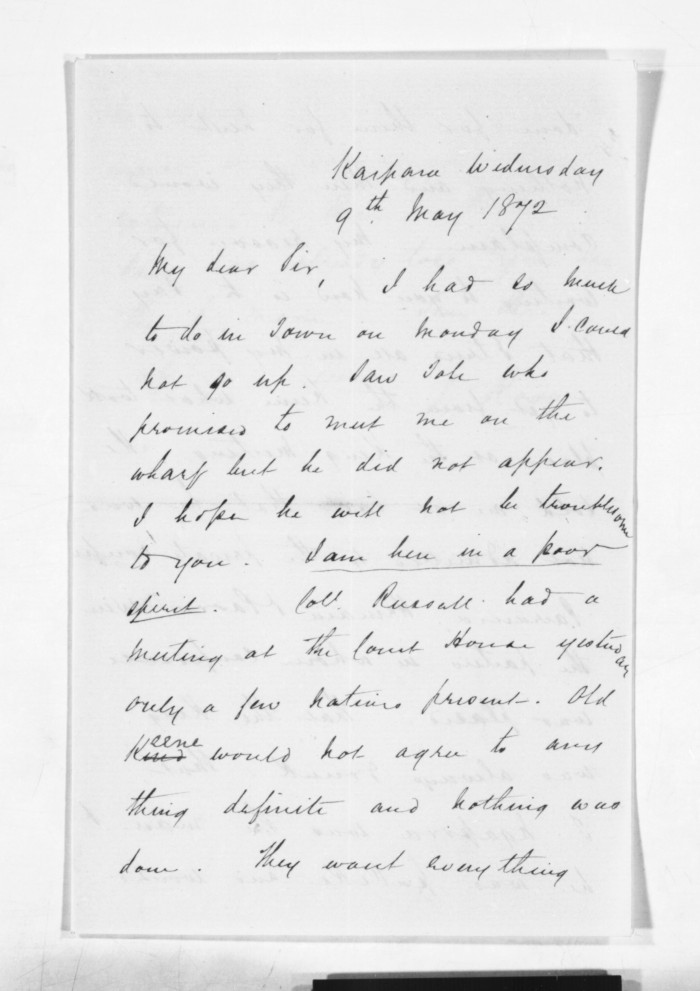 Kaipara Wednesday
9th May 1872
My dear Sir, I had so much
to do in Town on Monday I could
not go up. Saw Tole who
promised to meet me on the
wharf but he did not appear.
I hope he will not be troublesome
to you. I am here in a poor
spirit. Coll. Russell had a
meeting at the Court House yesterday
only a few natives present. Old
Keene would not agree to any
thing definite and nothing was
done. They want everything